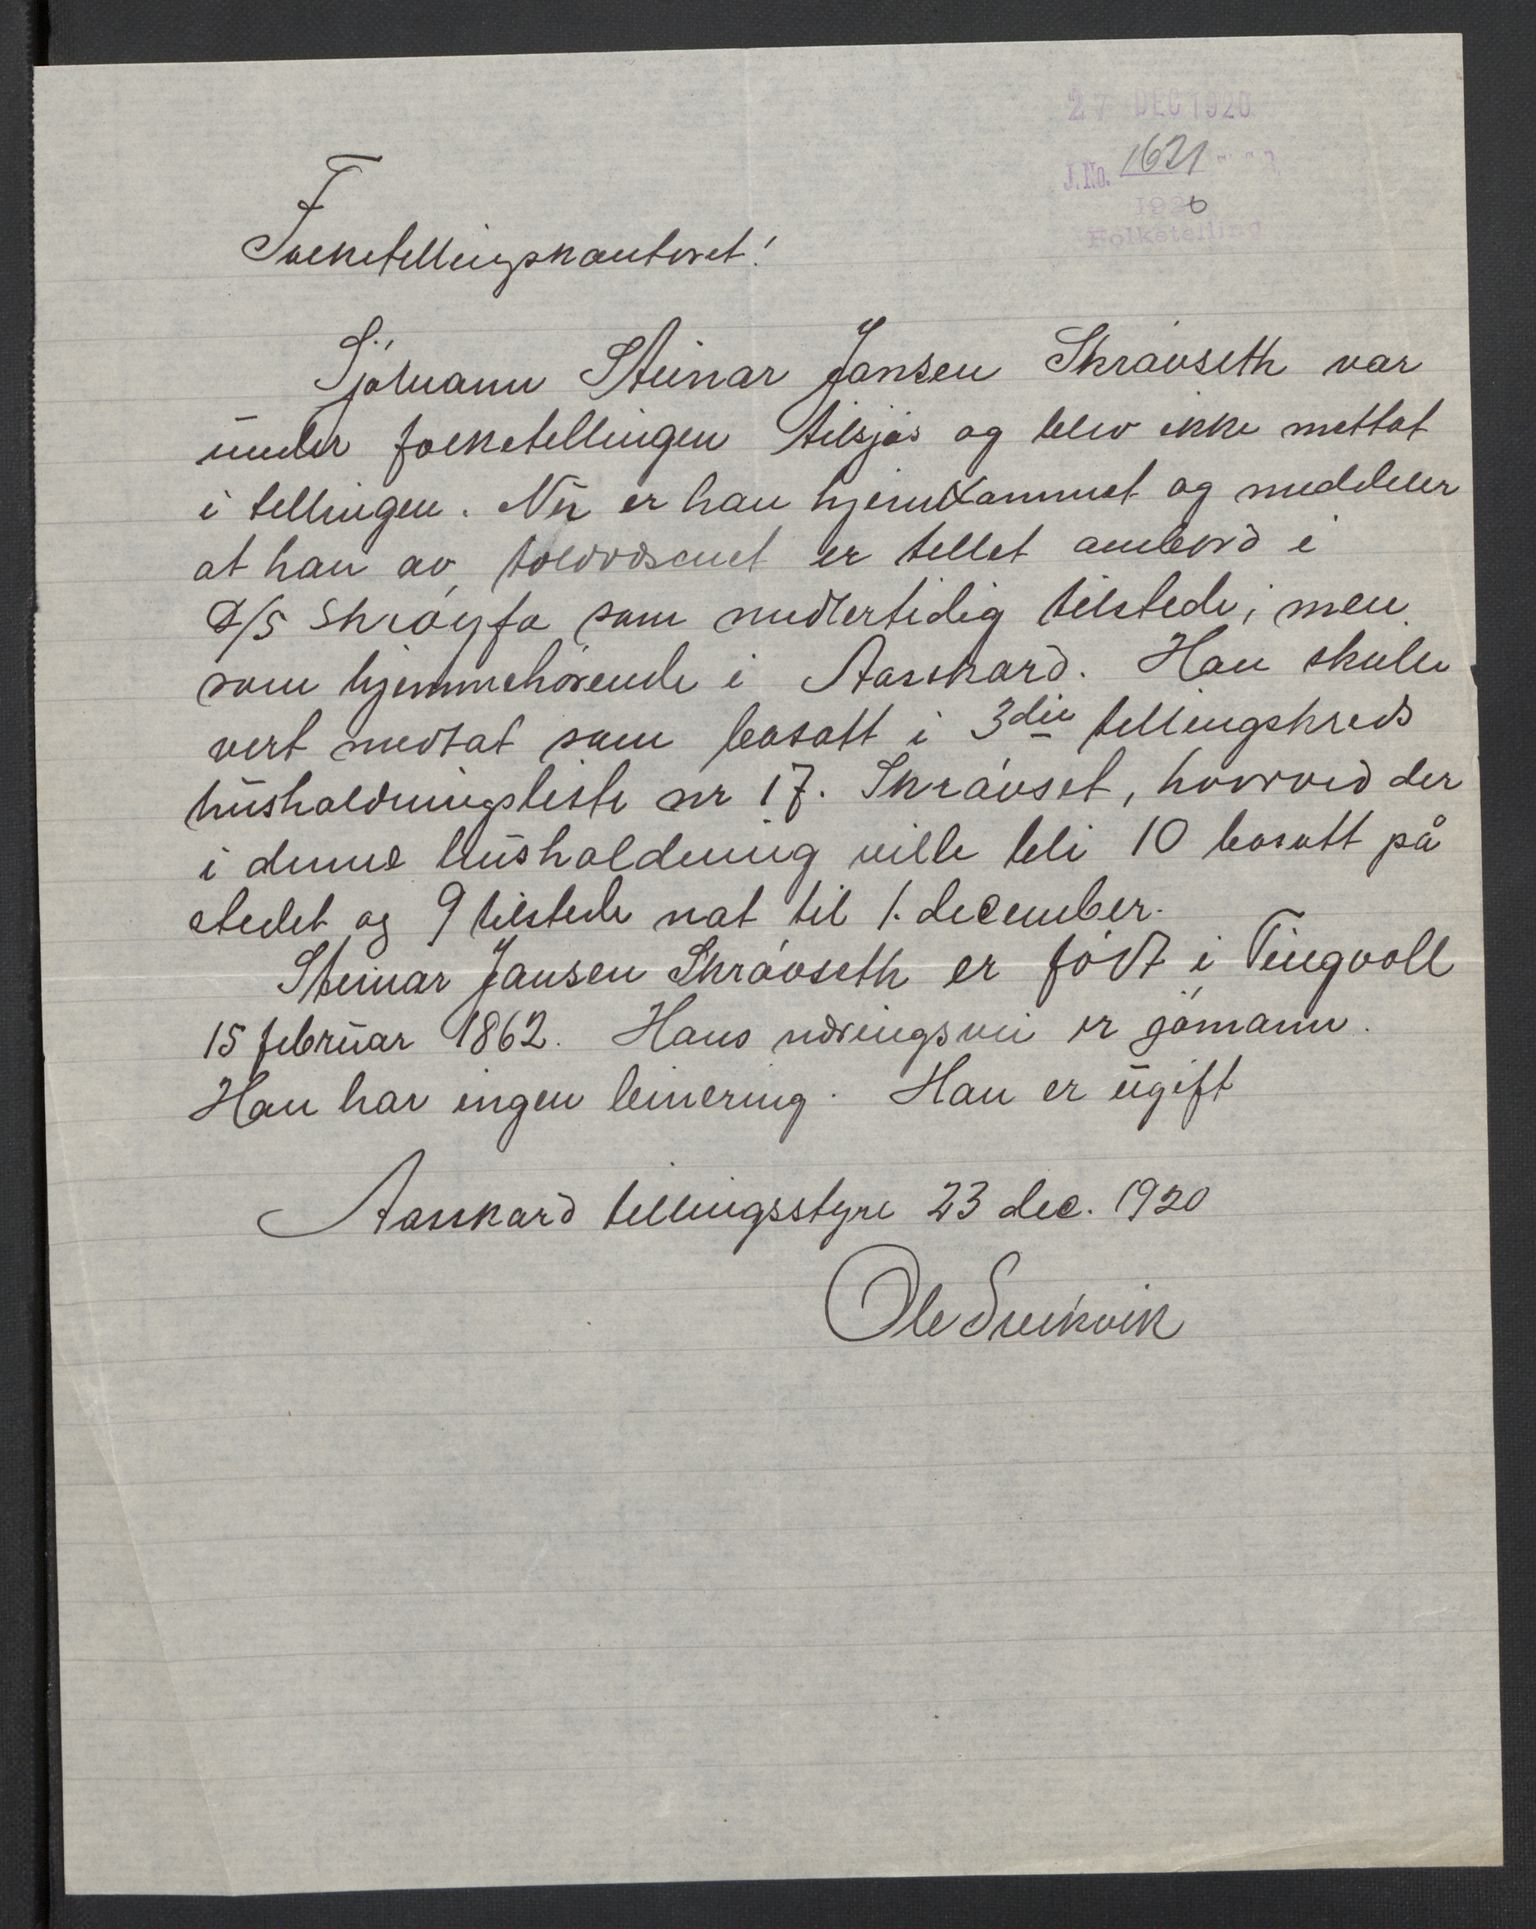 27 DEC 1920
J.No. 1621
1920
Folketelling
Folketellingskontoret!
Sjömann Steinar Jansen Skrøvseth var
under folketellingen tilsjøs og blev ikke mettat
i tellingen. Nu er han hjemkommet og meddeler
at han av toldvæsenet er tellet ombord i
D/S Skrøyfa som midlertidig tilstede; men
som hjemmehörende i Aasskard. Han skulle
vert medtat som bosatt i 3die tellingskreds
husholdningsliste nr 17. Skrövset, hvorved der
i denne husholdning ville bli 10 bosatt på
stedet og 9 tilstede nat til 1. december.
Steinar Jansen Skrövseth er födt i Tingvoll
15 februar 1862. Hans næringsvei er sjömann.
Han har ingen binering. Han er ugift
Aasskard tellingsstyre 23 dec. 1920
Ole